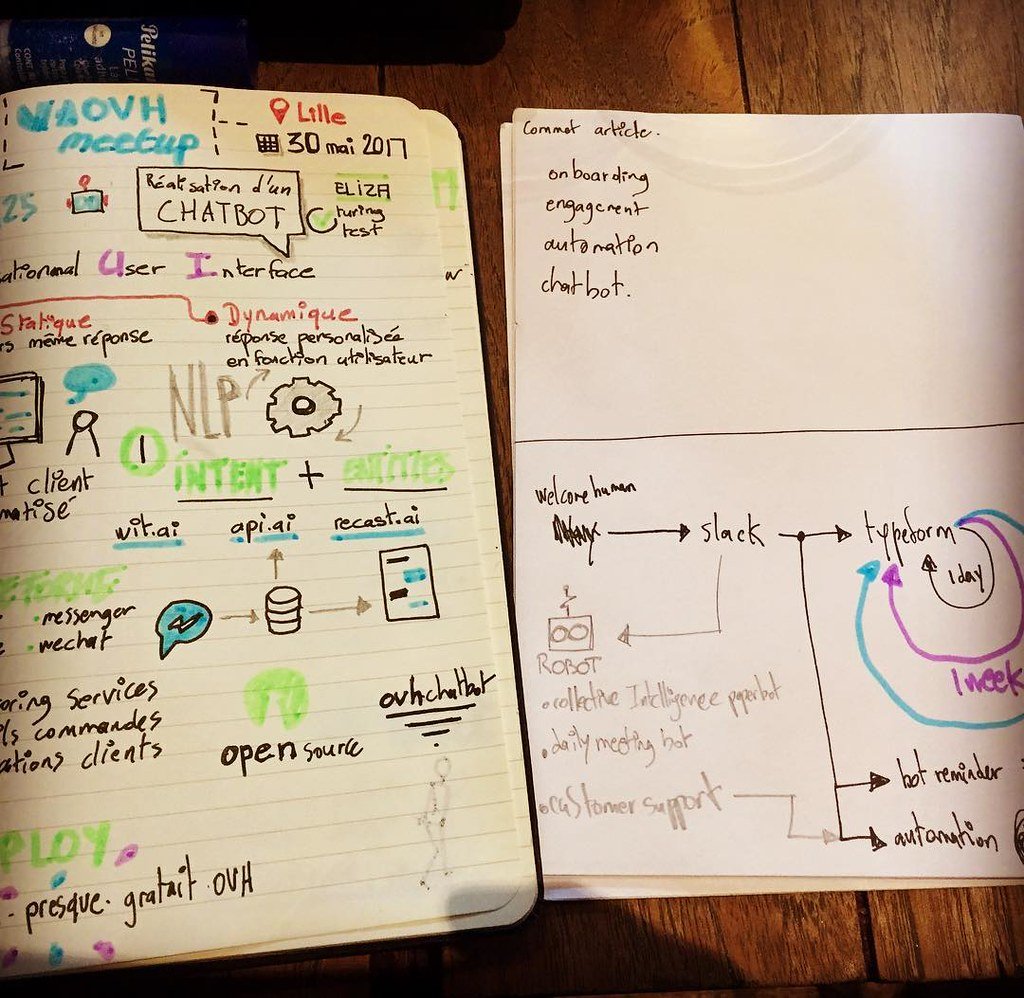 Pelikan
PEL
OVH
meetup
Lille
30 mai 2017
25
Réalisation d'un
CHATBOT
ELIZA
turing
test
ational User Interface
Statique
Dynamique
rs même réponse
réponse personalisée
en fonction utilisateur
NLP
1
INTENT + ENTITIES
t client
matisé
wit.ai
api.ai
recast.ai
messenger
wechat
oring services
ls commandes
ations clients
open source
ovh-chatbot
PLOY
- presque gratuit OVH
Commet article.
onboarding
engagement
automation
chatbot.
welcome human
slack
typeform
1 day
1 week
ROBOT
. collective Intelligence paperbot
. daily meeting bot
. customer support
bot reminder
automation